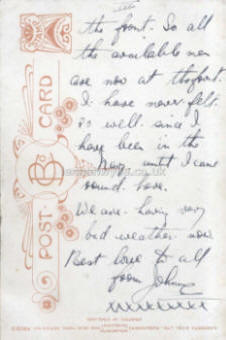 the front. So all
the available men
are now at the front.
I have never felt
so well since I
have been in the
Navy until I came
round here.
We are having very
bad weather now
Best love to all
from Johnny
xxxxxxxxx
POST CARD